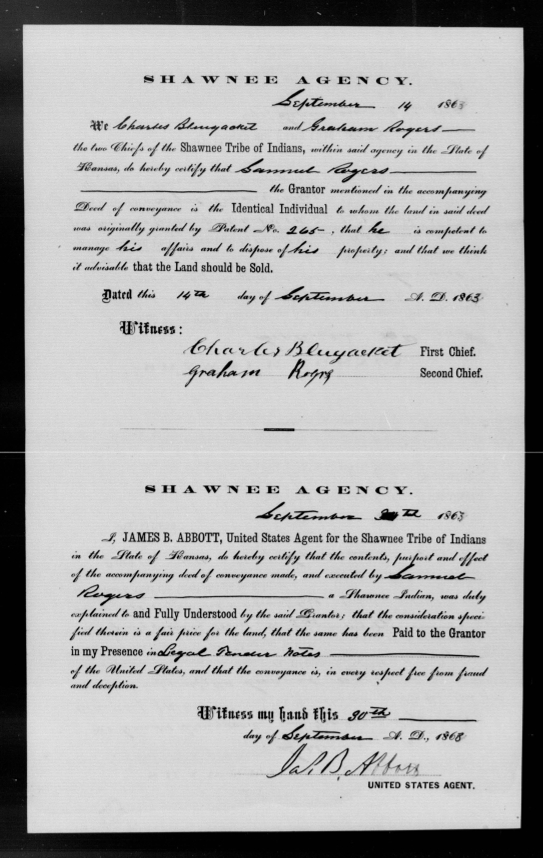 SHAWNEE AGENCY.
September 14 1863
We Charles Bluejacket and Graham Rogers
the two Chiefs of the Shawnee Tribe of Indians, within said agency in the State of
Kansas, do hereby certify that Samuel Rogers
the Grantor mentioned in the accompanying
Deed of conveyance is the Identical Individual to whom the land in said deed
was originally granted by Patent No. 265, that he is competent to
manage his affairs and to dispose of his property; and that we think
it advisable that the Land should be Sold.
Dated this 14th day of September A. D. 1863
Witness:
Charles Bluejacket First Chief.
Graham Rogrs Second Chief.
SHAWNEE AGENCY.
September 30th 1863
I, JAMES B. ABBOTT, United States Agent for the Shawnee Tribe of Indians
in the State of Kansas, do hereby certify that the contents, purport and effect
of the accompanying deed of conveyance made, and executed by Samuel
Rogers a Shawnee Indian, was duly
explained to and Fully Understood by the said Grantor; that the consideration speci-
fied therein is a fair price for the land, that the same has been Paid to the Grantor
in my Presence in Legal Tender Notes
of the United States, and that the conveyance is, in every respect free from fraud
and deception.
Witness my hand this 30th
day of September A. D., 1863
Jas. B. Abbott
UNITED STATES AGENT.